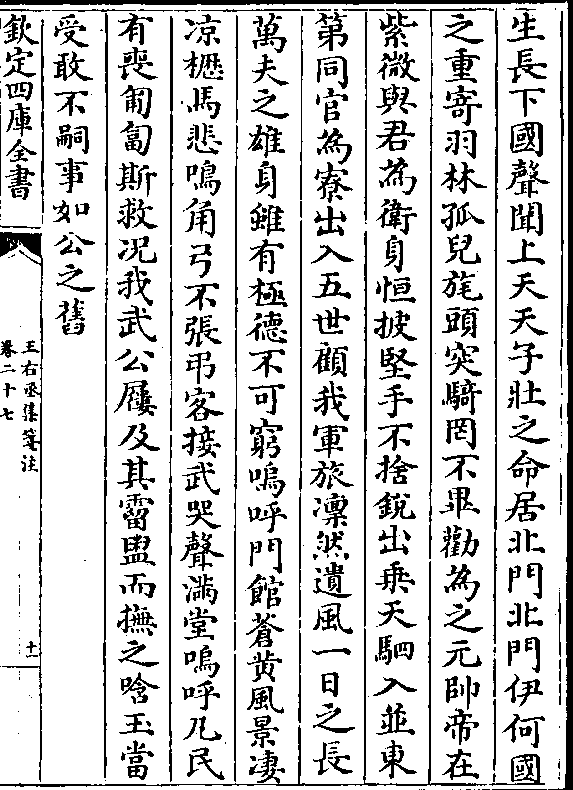 生長下國聲聞上天天子壯之命居北門北門伊何國
之重寄羽林孤兒旄頭突騎罔不畢勸為之元帥帝在
紫微與君為衛身恒披堅手不捨銳出乗天駟入並東
第同官為寮出入五世顧我軍旅凛然遺風一日之長
萬夫之雄身雖有極德不可窮嗚呼門館蒼黄風景凄
凉櫪馬悲鳴角弓不張弔客接武哭聲滿堂嗚呼凡民
有喪匍匐斯救况我武公屨及其霤盥而撫之唅玉當
受敢不嗣事如公之舊
欽定四庫全書
王右丞集箋注
卷二十七
十一